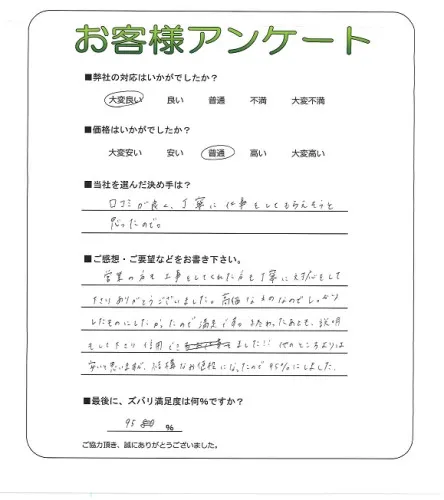 お客様アンケート
■弊社の対応はいかがでしたか？
大変良い 良い 普通 不満 大変不満
■価格はいかがでしたか？
大変安い 安い 普通 高い 大変高い
■当社を選んだ決め手は？
口コミが良く、丁寧に仕事をしてもらえそうと
思ったので。
■ご感想・ご要望などをお書き下さい。
営業の方も工事をしてくれた方も丁寧に対応をして
下さりありがとうございました。高価なものなのでしっかり
したものにしたかったので満足です。終わったあとも、説明
をして下さり信用できました!! 他のところよりは
安いと思いますが、結構なお値段になったので95%にしました。
■最後に、ズバリ満足度は何%ですか？
95 %
ご協力頂き、誠にありがとうございました。